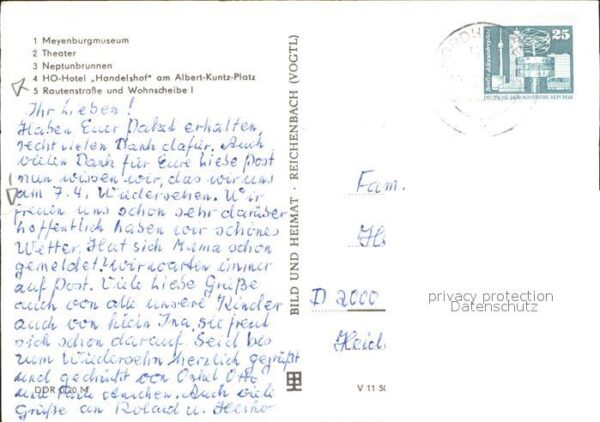 1 Meyenburgmuseum
2 Theater
3 Neptunbrunnen
4 HO-Hotel „Handelshof“ am Albert-Kuntz-Platz
5 Rautenstraße und Wohnscheibe I
Ihr Lieben!
Haben Euer Paket erhalten,
recht vielen Dank dafür. Auch
vielen Dank für Eure liebe Post
nun wissen wir, das wir uns
am 7.4. Wiedersehen. Wir
freuen uns schon sehr darüber
hoffentlich haben wir schönes
Wetter. Hat sich Mama schon
gemeldet? wir warten immer
auf Post. Viele liebe Grüße
auch von alle unsere Kinder
auch von klein Ina, sie freut
sich schon darauf. Seid bis
zum Wiedersehn herzlich gegrüßt
und gedrückt von Onkel Otto
und Tante Ännchen. Auch viele
Grüße an Roland u. Heiko
DDR 0,20 M
BILD UND HEIMAT · REICHENBACH (VOGTL)
V 11 50
25
DEUTSCHE DEMOKRATISCHE REPUBLIK
NORDH
Fam.
D 2000
privacy protection
Datenschutz